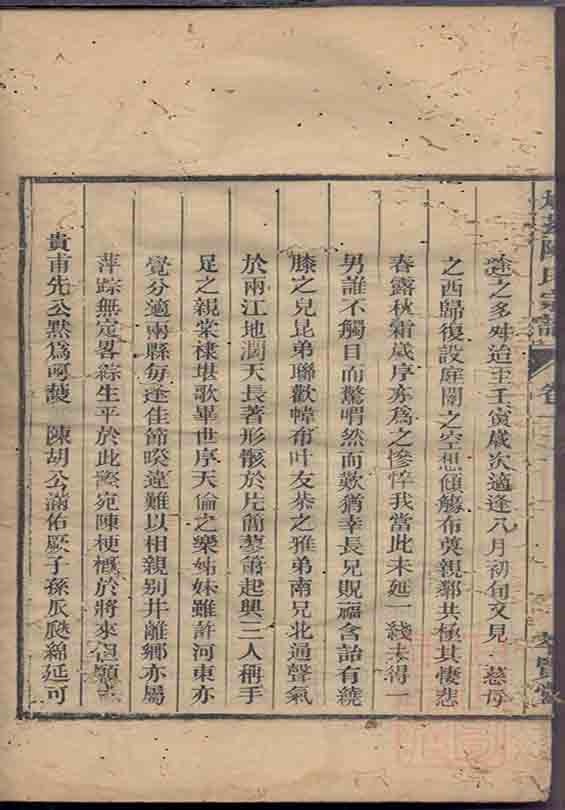 途之多舛迨至壬寅歲次適逢八月初旬又見 慈母
之西歸復設庭闈之空想傾觴布奠親鄰共極其悽悲
春露秋霜歲序亦為之慘悴我當此未延一綫未得一
男誰不觸目而驚喟然而歎猶幸長兄貺福含詒有繞
膝之兒昆弟聯歡幃布叶友恭之雅弟南兄北通聲氣
於兩江地濶天長著形骸於片前蓼蕭起興三人稱手
足之親棠棣堪歌畢世序天倫之樂姊妹雖許河東亦
覺分適兩縣每逢佳節暌違難以相親别井離鄉亦屬
萍踪無定畧綜生平於此際宛陳梗概於將來但願
貴甫先公默為呵護 陳胡公滿佑厥子孫瓜瓞綿延可
陳氏宗譜 卷